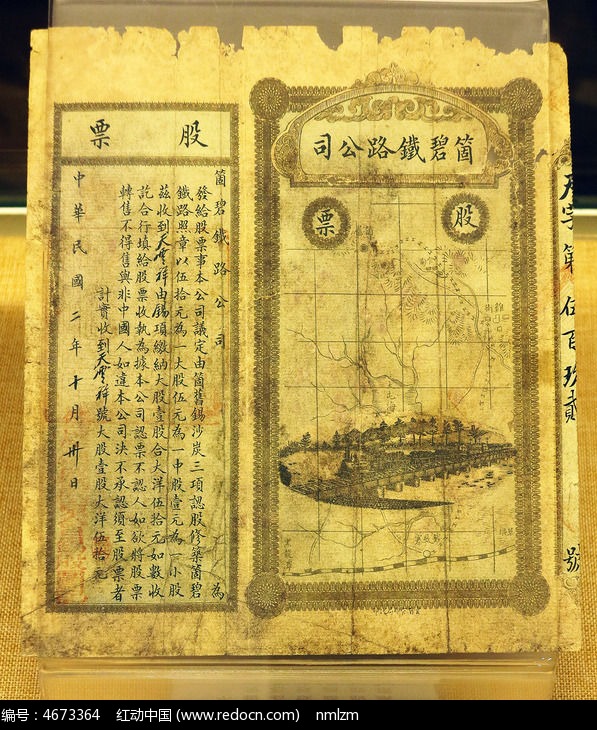 箇碧鐵路公司
股票
天字第伍百玖貳號
股票
箇碧鐵路公司為
發給股票事本公司議定由箇舊錫沙炭三項認股修築箇碧
鐵路照章以伍拾元為一大股伍元為一中股壹元為一小股
茲收到天寶祥由錫項繳納大股壹股合大洋伍拾元如數收
訖合行填給股票收執為據本公司認票不認人如欲將股票
轉售不得售與非中國人如違本公司決不承認須至股票者
計實收到天寶祥號大股壹股大洋伍拾元
中華民國二年十月卅日
编号：4673364 红动中国 (www.redocn.com) nmlzm